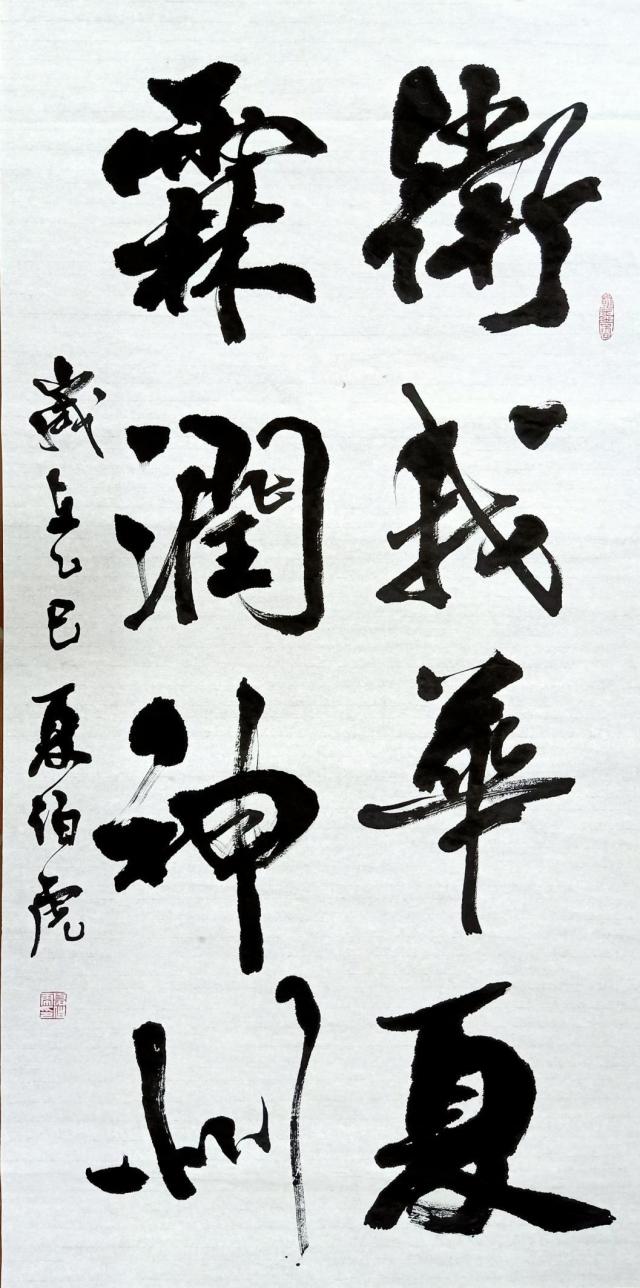 衛我華夏
霖潤神州
歲在乙巳 夏伯虎